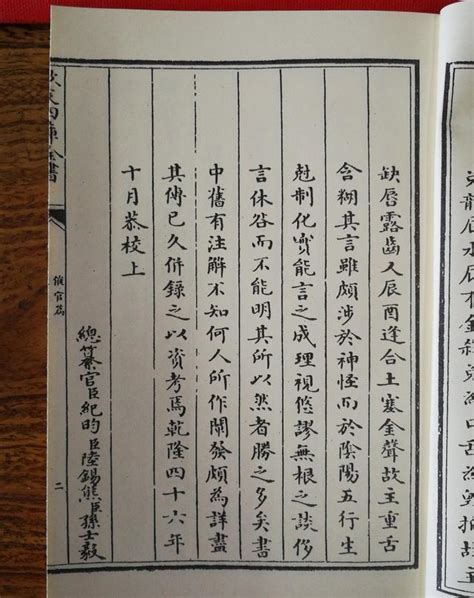 缺唇露齒人辰酉逢合土塞金聲故主重舌
含糊其言雖頗涉於神怪而於陰陽五行生
尅制化實能言之成理視悠謬無根之談侈
言休咎而不能明其所以然者勝之多矣書
中舊有注解不知何人所作闡發頗為詳盡
其傳已久併錄之以資考焉乾隆四十六年
十月恭校上
總纂官臣紀昀臣陸錫熊臣孫士毅
欽定四庫全書
官篇
二